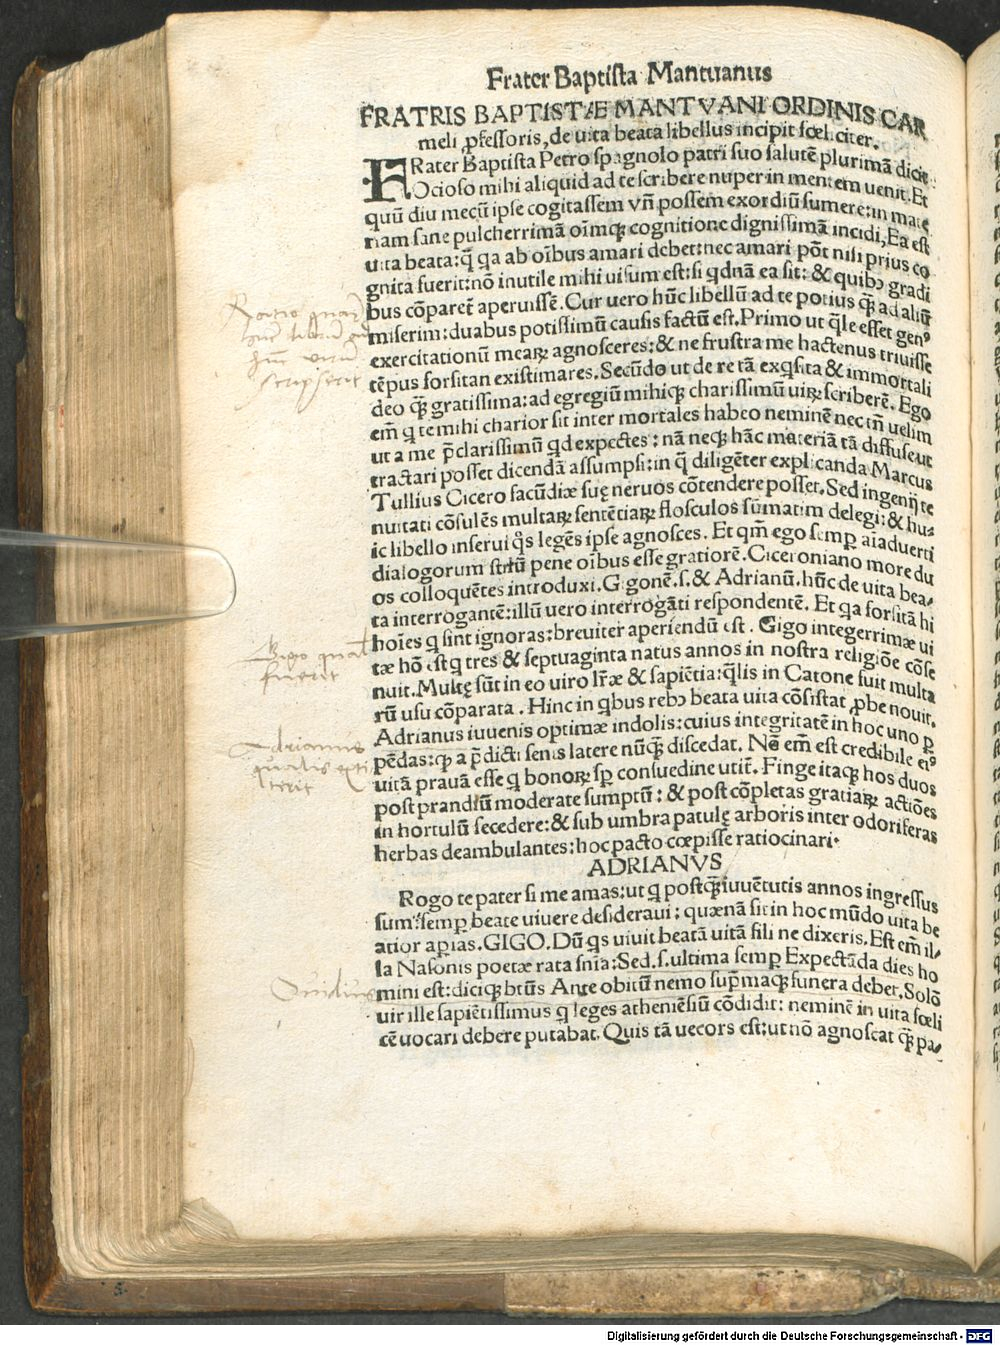 Frater Baptista Mantuanus
FRATRIS BAPTISTÆ MANTVANI ORDINIS CAR
meli ꝓfessoris, de uita beata libellus incipit fœliciter.
FRater Baptista Petro spagnolo patri suo salutē plurimā dicit:
Ocioso mihi aliquid ad te scribere nuper in mentem uenit. Et
quū diu mecū ipse cogitassem vn̄ possem exordiū sumere: in mate
riam sane pulcherrimā oīmqꝫ cognitione dignissimā incidi, Ea est
uita beata: q̄ qa ab oībus amari debet: nec amari pōt nisi prius co
gnita fuerit: nō inutile mihi uisum est: si qdnā ea sit: & quibꝰ gradi
bus cōparet̄ aperuissē. Cur uero hūc libellū ad te potius q̄ꝫ ad aliū
miserim: duabus potissimū causis factū est. Primo ut q̄le esset genꝰ
exercitationū mearꝝ agnosceres: & ne frustra me hactenus triuisse
tēpus forsitan existimares. Secūdo ut de re tā exqsita & immortali
deo q̄ꝫ gratissima: ad egregiū mihiqꝫ charissimū uirꝝ scriberē. Ego
em̄ q te mihi charior sit inter mortales habeo neminē nec tn̄ uelim
ut a me p̄clarissimū qd expectes: nā neqꝫ hāc materiā tā diffuse ut
tractari posset dicendā assumpsi: in q̄ diligēter explicanda Marcus
Tullius Cicero facūdiæ suę neruos cōtendere posset. Sed ingenij te
nuitati cōsulēs multarꝝ sentētiarꝝ flosculos sūmatim delegi: & hu⸗
ic libello inserui q̄s legēs ipse agnosces. Et qm̄ ego semꝑ aīaduerti
dialogorum stilū pene oībus esse gratiorē. Ciceroniano more du
os colloquētes introduxi. Gigonē. s. & Adrianū. hūc de uita bea⸗
ta interrogantē: illū uero interrogāti respondentē. Et qa forsitā hi
hoīes q sint ignoras: breuiter aperiendū est. Gigo integerrimæ ui
tæ hō est q tres & septuaginta natus annos in nostra religiōe cōse
nuit. Multę sūt in eo uiro lr̄æ & sapiētia: q̄lis in Catone fuit multa
rū usu cōparata. Hinc in qbus rebꝰ beata uita cōsistat ꝓbe nouit.
Adrianus iuuenis optimæ indolis: cuius integritatē in hoc uno ꝑ
pēdas: qꝫ a p̄dicti senis latere nūqꝫ discedat. Nō em̄ est credibile eiꝰ
uitā prauā esse q bonorꝝ sꝑ consuedine utit̄. Finge itaqꝫ hos duos
post prandiū moderate sumptū: & post cōpletas gratiarꝝ actiōes
in hortulū secedere: & sub umbra patulę arboris inter odoriferas
herbas deambulantes: hoc pacto cœpisse ratiocinari.
ADRIANVS
Rogo te pater si me amas: ut q postq̄ꝫ iuuētutis annos ingressus
sum: semꝑ beate uiuere desideraui: quænā sit in hoc mūdo uita be
atior aꝑias. GIGO. Dū qs uiuit beatā uitā fili ne dixeris. Est em̄ il⸗
la Nasonis poetæ rata sn̄ia: Sed. s. ultima semꝑ Expectāda dies ho
mini est: diciqꝫ btūs Ante obitū nemo sup̄maqꝫ funera debet. Solō
uir ille sapiētissimus q leges atheniēsiū cōdidit: neminē in uita fœli
cē uocari debere putabat. Quis tā uecors est: ut nō agnoscat q̄ꝫ pa⸗
Ratio quare
hunc librum ad
hunc virum
scripserit
Gigo qualis
fuerit
Adrianus
qualis exti
terit
Ouidius
Digitalisierung gefördert durch die Deutsche Forschungsgemeinschaft - DFG